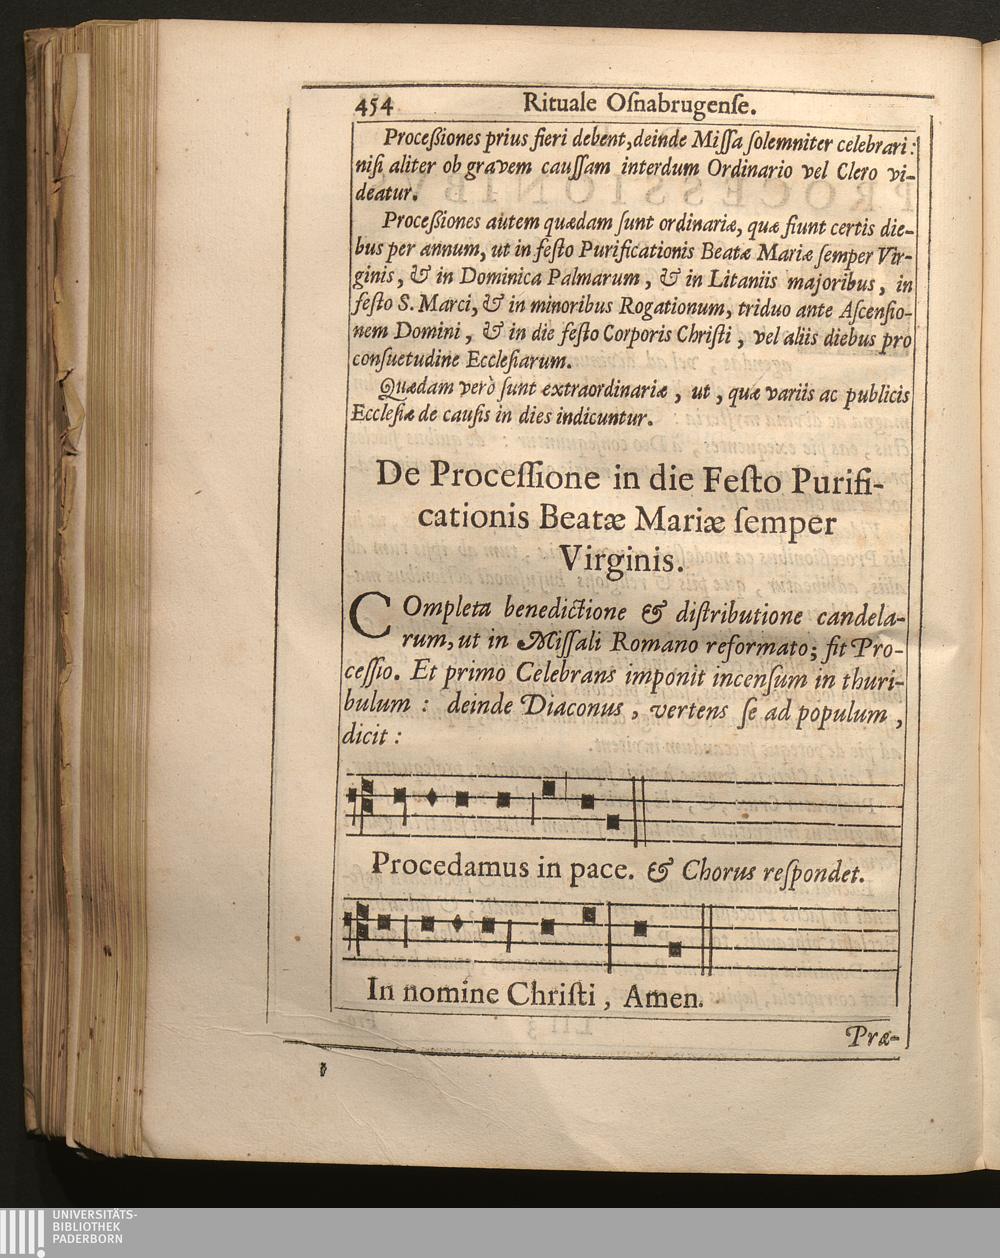 454 Rituale Oſnabrugenſe.
Proceßiones prius fieri debent, deinde Miſſa ſolemniter celebrari:
niſi aliter ob gravem cauſſam interdum Ordinario vel Clero vi-
deatur.
Proceßiones autem quædam ſunt ordinariæ, quæ fiunt certis die-
bus per annum, ut in feſto Purificationis Beatæ Mariæ ſemper Vir-
ginis, & in Dominica Palmarum, & in Litaniis majoribus, in
feſto S. Marci, & in minoribus Rogationum, triduo ante Aſcenſio-
nem Domini, & in die feſto Corporis Chriſti, vel aliis diebus pro
conſuetudine Eccleſiarum.
Quædam verò ſunt extraordinariæ, ut, quæ variis ac publicis
Eccleſiæ de cauſis in dies indicuntur.
De Proceſſione in die Feſto Purifi-
cationis Beatæ Mariæ ſemper
Virginis.
COmpleta benedictione & diſtributione candela-
rum, ut in Miſſali Romano reformato; fit Pro-
ceſſio. Et primo Celebrans imponit incenſum in thuri-
bulum: deinde Diaconus, vertens ſe ad populum,
dicit:
Procedamus in pace. & Chorus reſpondet.
In nomine Chriſti, Amen.
Præ-
UNIVERSITÄTS-
BIBLIOTHEK
PADERBORN